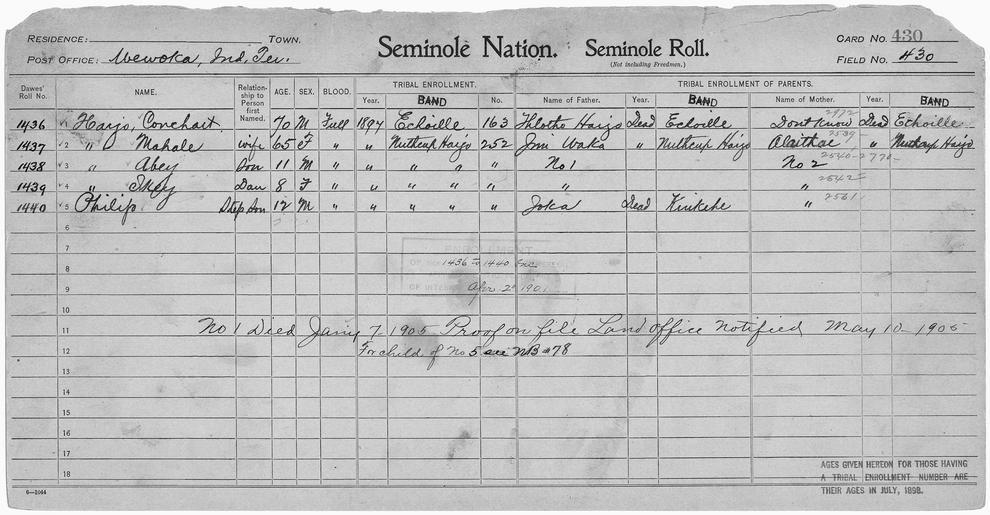 RESIDENCE: TOWN. Seminole Nation. Seminole Roll. CARD NO. 430
POST OFFICE: Wewoka, Ind. Ter. (Not including Freedmen.) FIELD NO. 430
Dawes' Roll No. NAME. Relationship to Person first Named. AGE. SEX. BLOOD. TRIBAL ENROLLMENT. TRIBAL ENROLLMENT OF PARENTS.
Year. BAND No. Name of Father. Year. BAND Name of Mother. Year. BAND
2972
1436 1 Harjo, Conchart 70 M Full 1897 Echoille 163 Thlotho Harjo Dead Echoille Dont Know Dead Echoille
2539
1437 2 " Mahale wife 65 F " " Nuthcup Harjo 252 Jim Waka " Nuthcup Harjo " Nuthcup Harjo
2540-2770-
1438 3 " Abey Son 11 M " " " " " " No 1 No 2
2542
1439 4 " Dau 8 F " " " " " " " "
2561
1440 5 Philip Step Son 12 M " " " " " " Joka Dead Kinkehe "
6
7
ENROLLMENT
8 1436 to 1440 Inc
9 Apr 2 1901
10
11 No 1 Died Jany 7-1905- Proof on file Land office Notified May 10-1905-
12 For child of No 5 see NB #78
13
14
15
16
17
18
AGES GIVEN HEREON FOR THOSE HAVING
A TRIBAL ENROLLMENT NUMBER ARE
THEIR AGES IN JULY, 1898.
6—2044